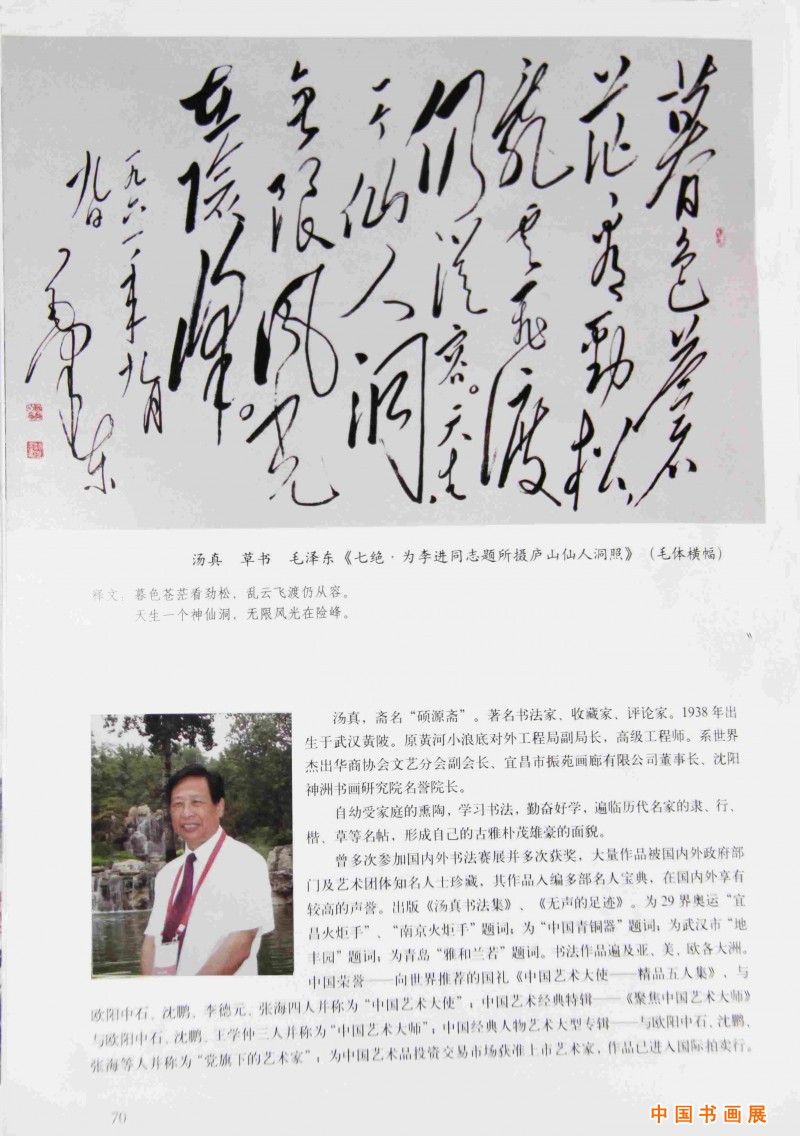 暮色蒼
茫看勁松
亂雲飛渡
仍從容。天生
一个仙人洞
無限風光
在險峰。
一九六一年九月
九日
毛泽东
汤真 草书 毛泽东《七绝·为李进同志题所摄庐山仙人洞照》（毛体横幅）
释文：暮色苍茫看劲松，乱云飞渡仍从容。
天生一个神仙洞，无限风光在险峰。
汤真，斋名“硕源斋”。著名书法家、收藏家、评论家。1938年出
生于武汉黄陂。原黄河小浪底对外工程局副局长，高级工程师。系世界
杰出华商协会文艺分会副会长、宜昌市振苑画廊有限公司董事长、沈阳
神洲书画研究院名誉院长。
自幼受家庭的熏陶，学习书法，勤奋好学，遍临历代名家的隶、行、
楷、草等名帖，形成自己的古雅朴茂雄豪的面貌。
曾多次参加国内外书法赛展并多次获奖，大量作品被国内外政府部
门及艺术团体知名人士珍藏，其作品入编多部名人宝典，在国内外享有
较高的声誉。出版《汤真书法集》、《无声的足迹》。为29界奥运“宜
昌火炬手”、“南京火炬手”题词；为“中国青铜器”题词；为武汉市“地
丰园”题词；为青岛“雅和兰若”题词。书法作品遍及亚、美、欧各大洲。
中国荣誉——向世界推荐的国礼《中国艺术大使——精品五人集》，与
欧阳中石、沈鹏、李德元、张海四人并称为“中国艺术大使”；中国艺术经典特辑——《聚焦中国艺术大师》
与欧阳中石、沈鹏、王学仲三人并称为“中国艺术大师”；中国经典人物艺术大型专辑——与欧阳中石、沈鹏、
张海等人并称为“党旗下的艺术家”；为中国艺术品投资交易市场获准上市艺术家，作品已进入国际拍卖行。
70
中国书画展